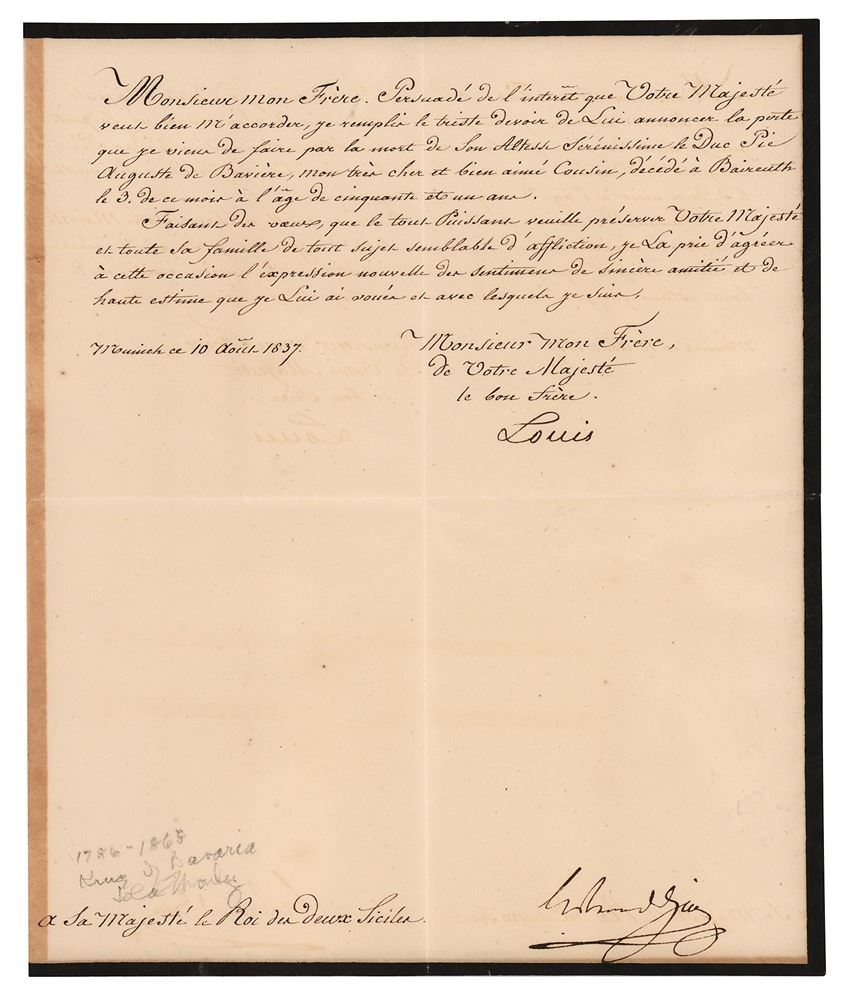 Monsieur mon Frère. Persuadé de l'interêt que Votre Majesté
veut bien m'accorder, je remplis le triste devoir de Lui annoncer la perte
que je viens de faire par la mort de Son Altesse Sérénissime le Duc Pie
Auguste de Bavière, mon très cher et bien aimé Cousin, décédé à Baireuth
le 3. de ce mois à l'âge de cinquante et un ans.
Faisant des vœux, que le tout Puissant veuille préserver Votre Majesté
et toute Sa famille de tout sujet semblable d'affliction, je La prie d'agréer
à cette occasion l'expression nouvelle des sentimens de sincère amitié et de
haute estime que je Lui ai voués et avec lesquels je suis,
Munich ce 10 Août 1837.
Monsieur mon Frère,
de Votre Majesté
le bon frère.
Louis
1786-1868
King of Bavaria
a Sa Majesté le Roi des deux Siciles.